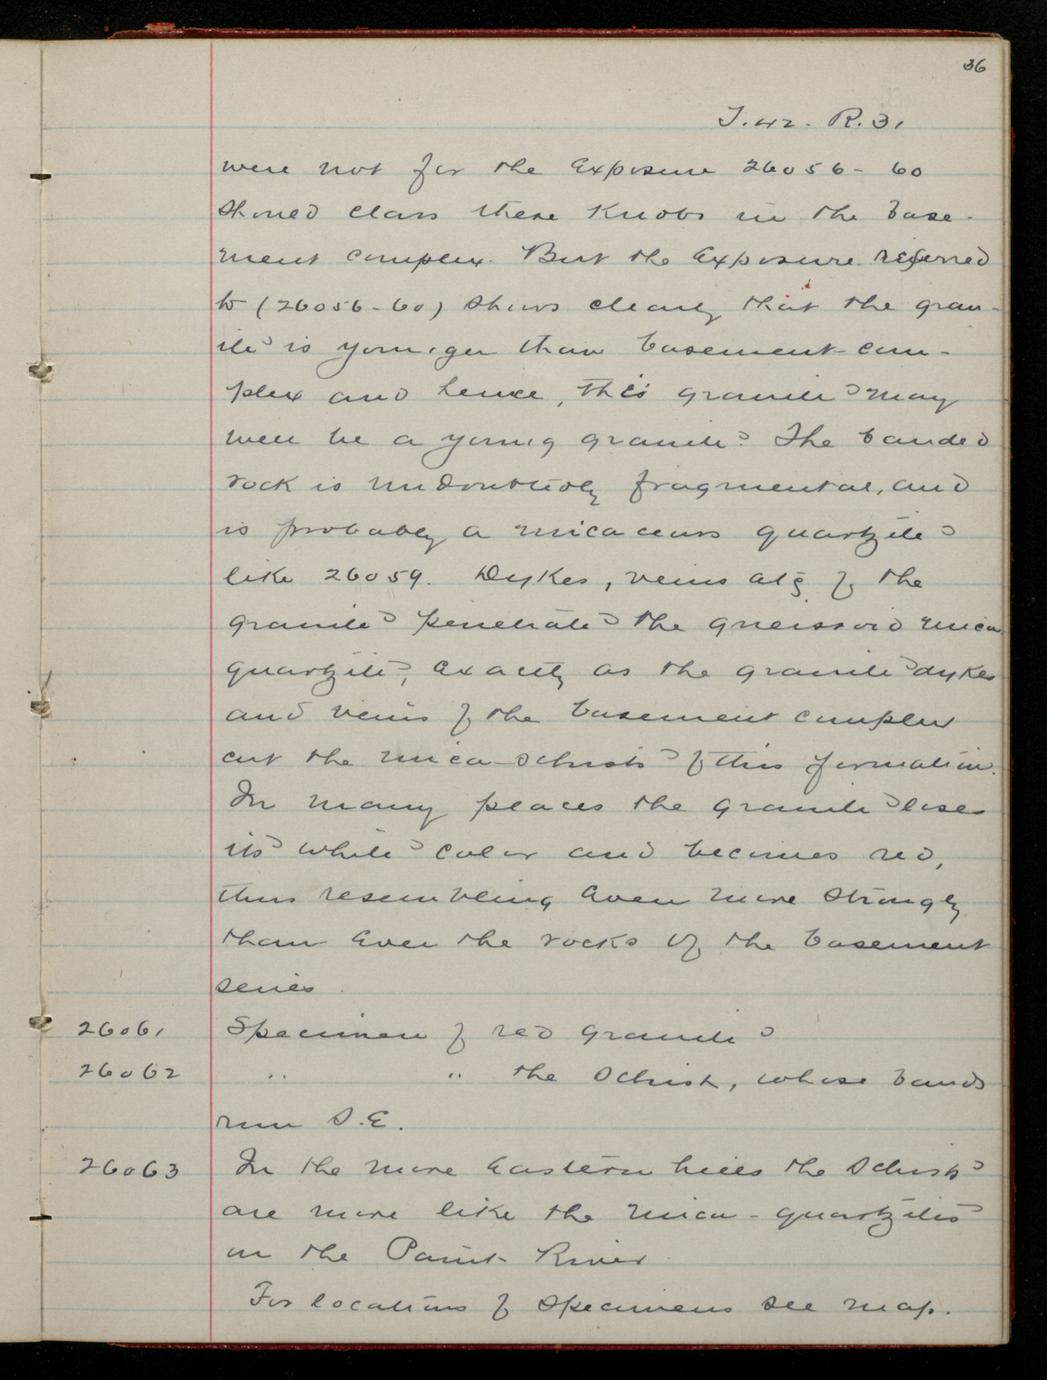 36
T. 42. R. 31
were not for the exposure 26056-60
should class these knobs in the base-
ment complex. But the exposure referred
to (26056-60) shows clearly that the gran-
ite is younger than basement com-
plex and hence, this granite may
well be a young granite. The banded
rock is undoubtedly fragmental, and
is probably a micaceous quartzite
like 26059. Dykes, veins etc. of the
granite penetrate the gneissoid mica
quartzite, exactly as the granite dykes
and veins of the basement complex
cut the mica-schists of this formation.
In many places the granite loses
its white color and becomes red,
thus resembling even more strongly
than ever the rocks of the basement
series.
26061 Specimen of red granite
26062 " " the schist, whose bands
run S.E.
26063 In the more eastern hills the schists
are more like the mica-quartzites
in the Paint River
For locations of specimens see map.